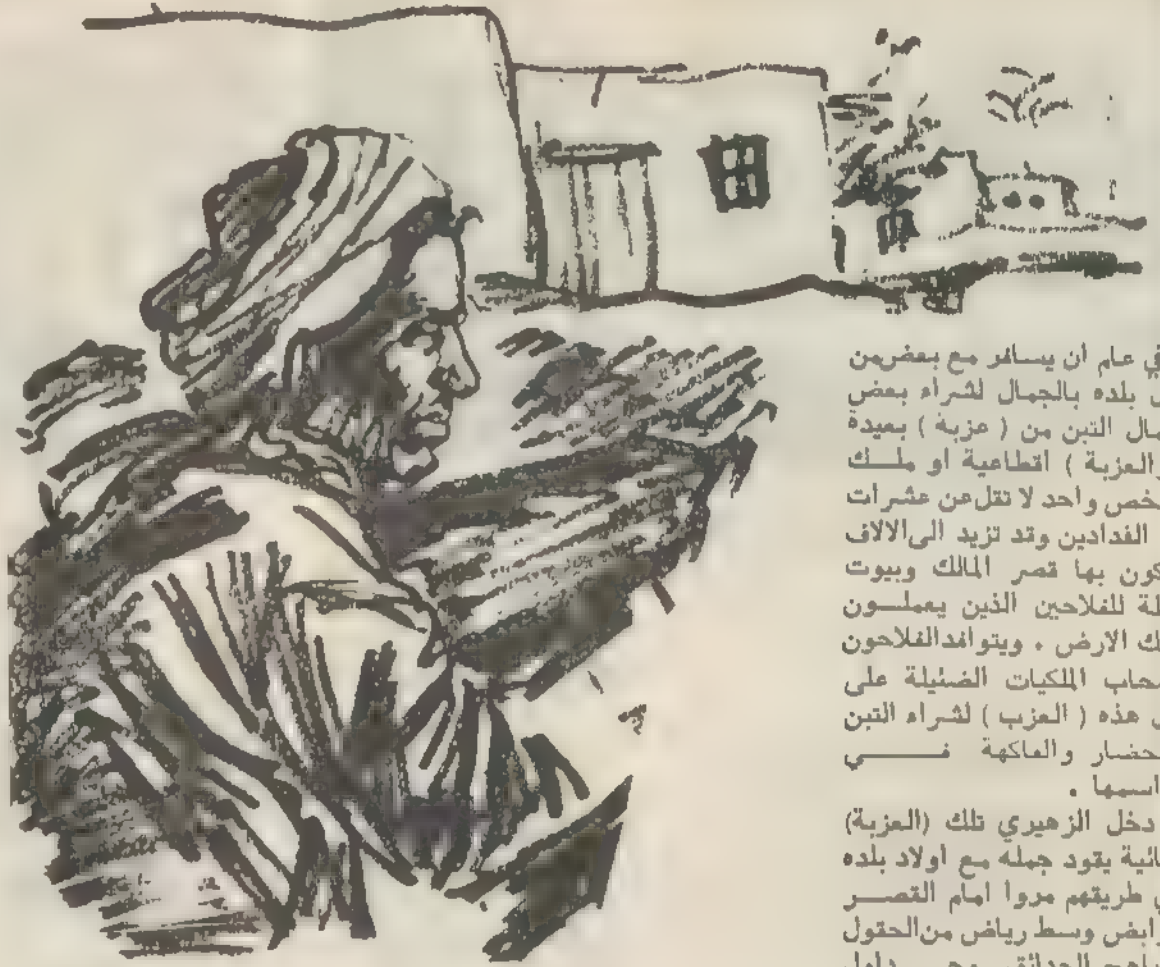 في عام أن يسافر مع بعض من
بلده بالجمال لشراء بعض
مال التبن من ( عزبة ) بعيدة
والعزبة ) اقطاعية او ملك
خص واحد لا تقل عن عشرات
الفدادين وقد تزيد الى الالاف
كون بها قصر المالك وبيوت
لة للفلاحين الذين يعملون
لك الارض . ويتوافد الفلاحون
حاب الملكيات الضئيلة على
هذه ( العزب ) لشراء التبن
خضار والفاكهة في
اسمها .
دخل الزهيري تلك (العزبة)
ائية يقود جمله مع أولاد بلده
طريقهم مروا امام القصر
رابض وسط رياض من الحقول